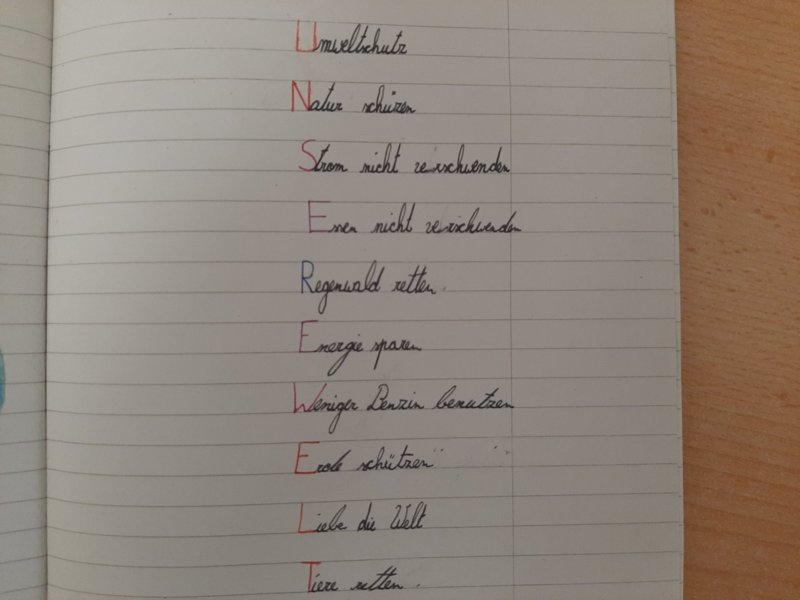 Umweltschutz
Natur schüzen
Strom nicht verschwenden
Essen nicht verschwenden
Regenwald retten.
Energie sparen
Weniger Benzin benutzen
Erde schützen
Liebe die Welt
Tiere retten.